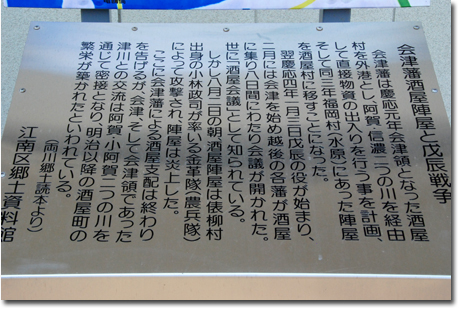 会津藩酒屋陣屋と戊辰戦争
会津藩は慶応元年会津領となった酒屋
村を外港とし、阿賀・信濃二つの川を経由
して直接物資の出入りを行う事を計画、
そして同三年福岡村(水原)にあった陣屋
を酒屋村に移すことになった。
翌慶応四年一月三日戊辰の役が始まり、
二月には会津を始め越後の各藩が酒屋
に集り八日間にわたり会議が開かれた。
世に「酒屋会議」として知られている。
しかし八月二日の朝、酒屋陣屋は表柳村
出身の小林政司が率いる金革隊(農兵隊)
によって攻撃され、陣屋は炎上した。
ここに会津藩による酒屋支配は終わり
を告げるが、会津、そして会津領であった
津川との交流は阿賀・小阿賀二つの川を
通じて密接となり、明治以降の酒屋町の
繁栄が築かれたといわれている。
(両川郷土読本より)
江南区郷土資料館